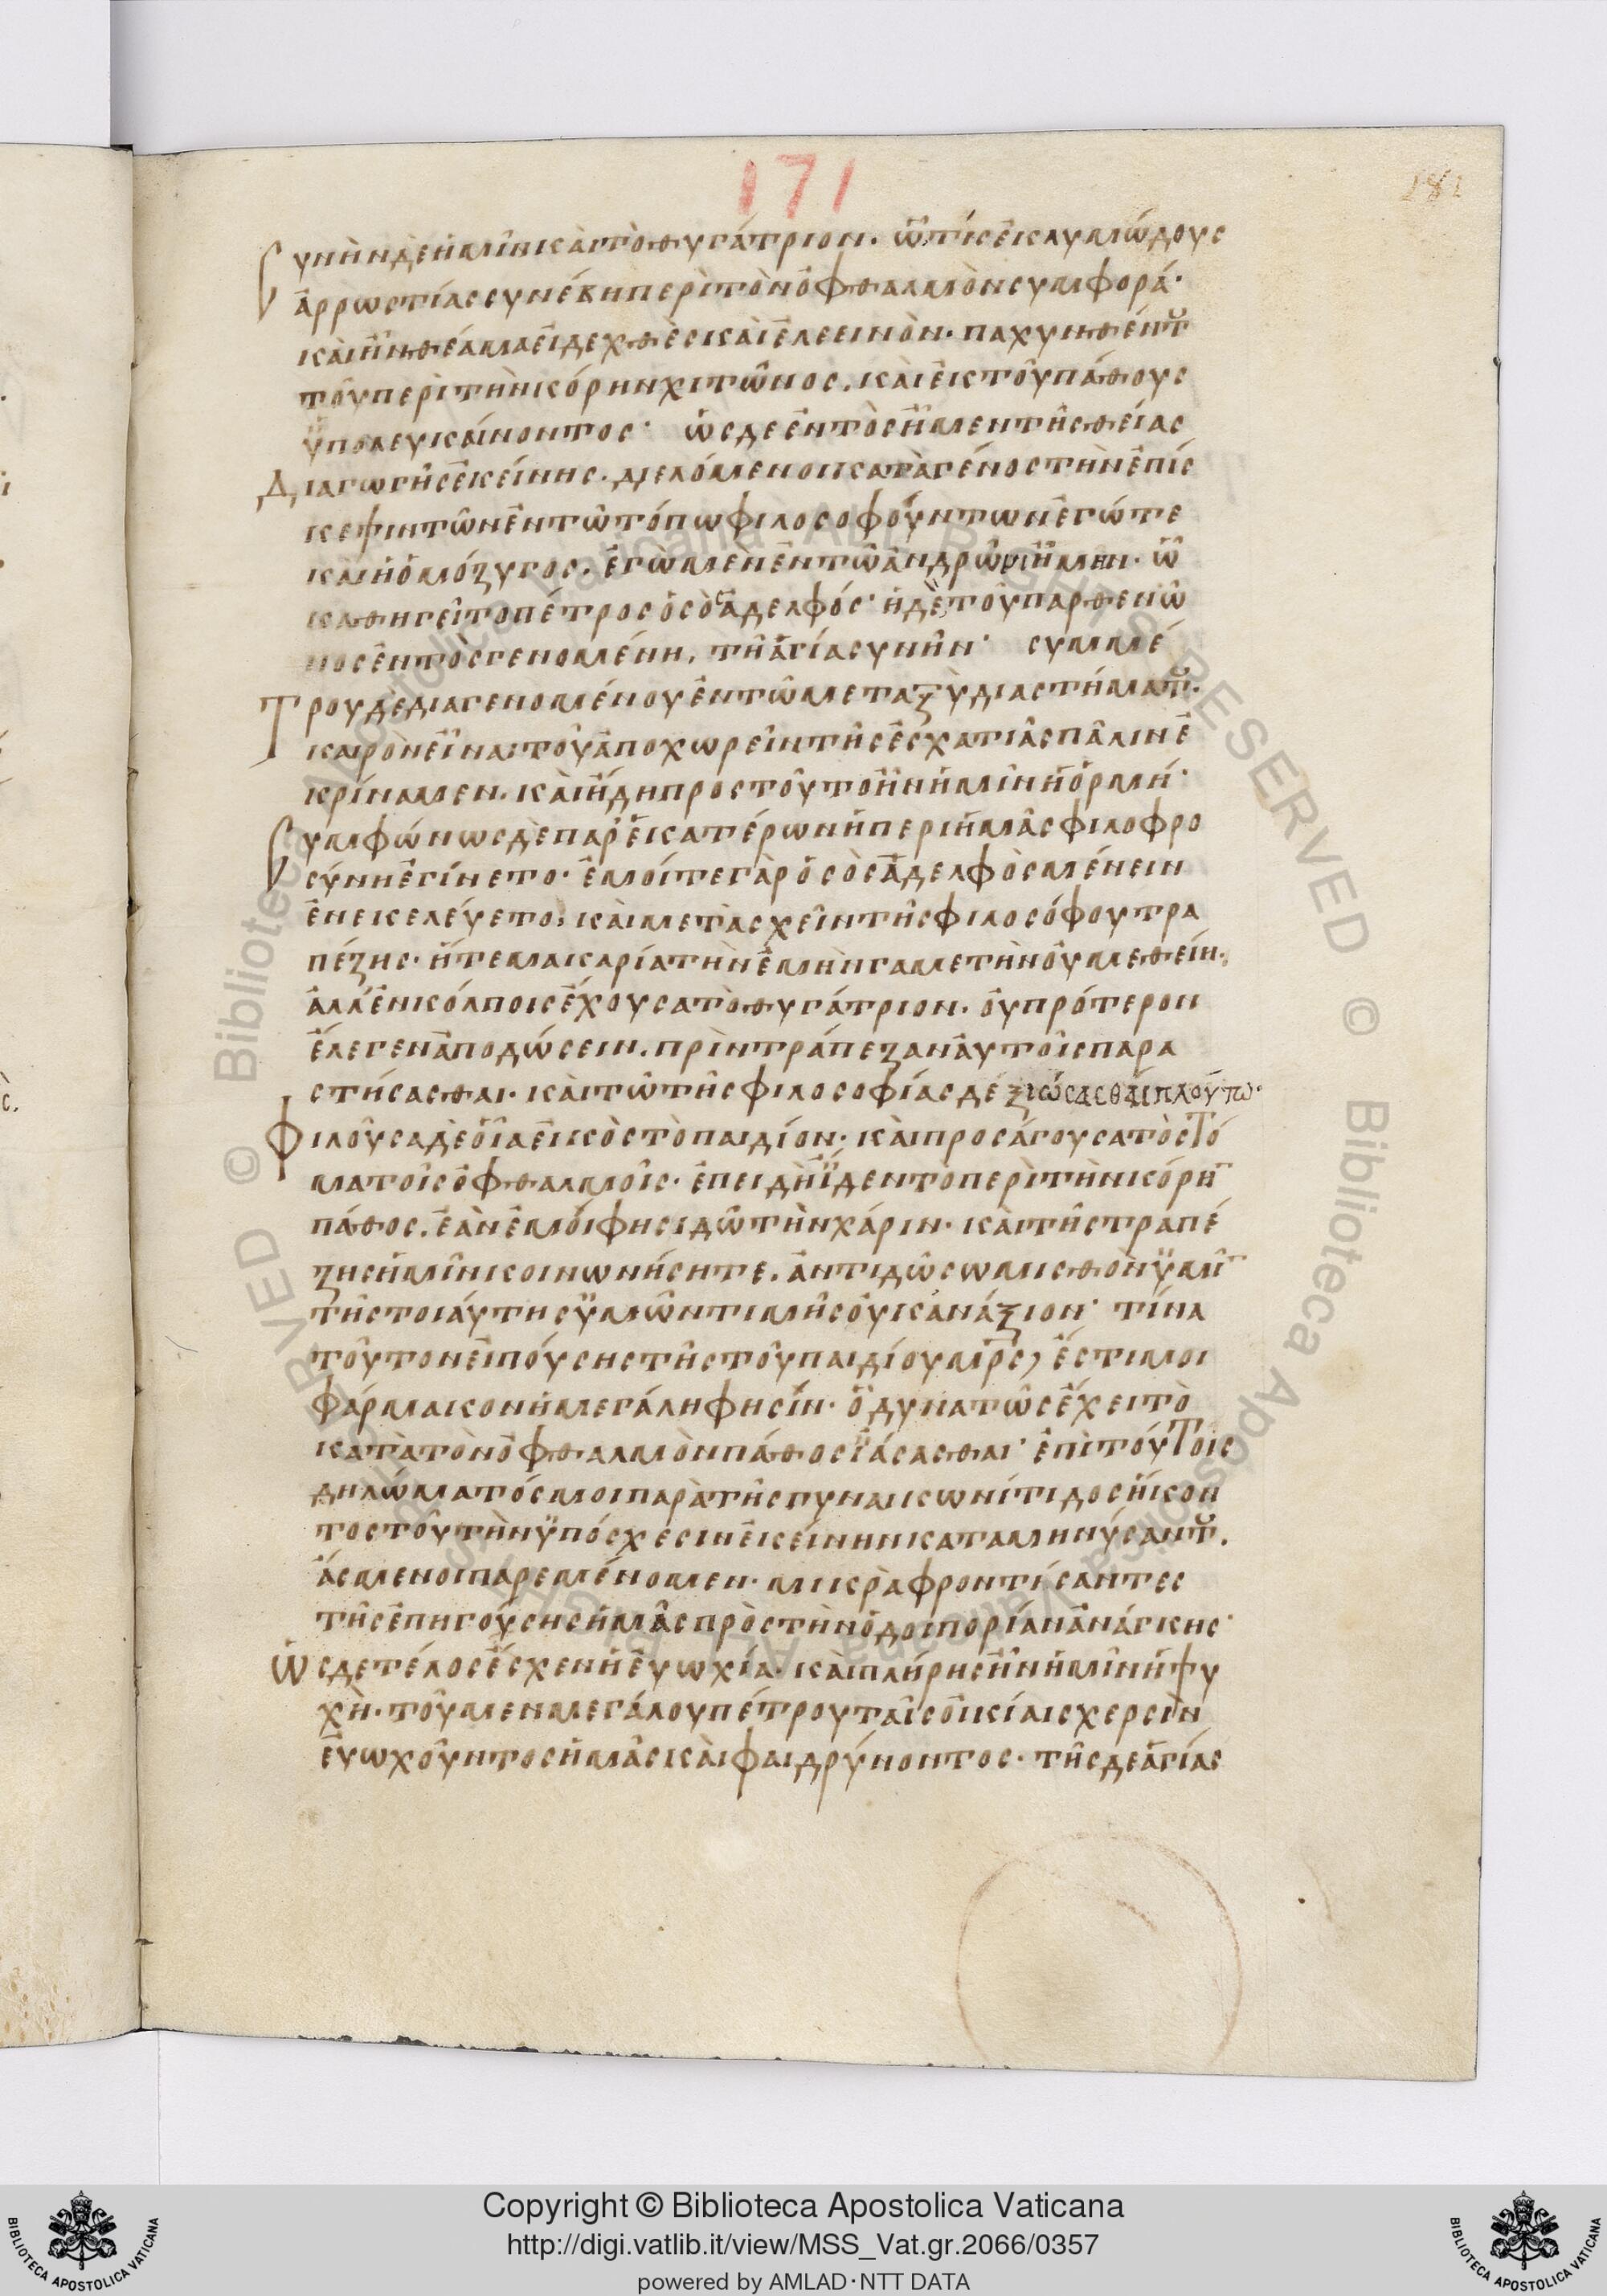 171
181
Συνὴν δὲ ἡμῖν καὶ τὸ θυγάτριον· ᾧ τις ἐκ λυμώδους
ἀρρωστίας συνέβη περὶ τὸν ὀφθαλμὸν συμφορά·
καὶ ἦν θέαμα εἰδεχθὲς καὶ ἐλεεινὸν· παχυνθέντ(ος)
τοῦ περὶ τὴν κόρην χιτῶνος, καὶ ἐκ τοῦ πάθους
ὑπολευκαίνοντος· ὡς δε ἐντὸς ἦμεν τῆς θείας
Διαγωγῆς ἐκείνης· διελόμενοι κατὰ γένος τὴν ἐπίς
κεψιν τῶν ἐν τῶ τόπω φιλοσοφούντων ἐγώ τε
καὶ ἡ ὁμόζυγος· ἐγὼ μὲν ἐν τῶ ἀνδρῶνι ἤμην· ᾧ
καθηγεῖτο πέτρος ὁ σὸς ἀδελφός· ἡ δὲ τοῦ παρθενῶ
νος ἐντὸς γενομένη, τῆ ἁγία συνῆν· συμμέ
Τρου δε διαγενομένου ἐν τῶ μεταξὺ διαστήματ(ος)·
καιρὸν εἶναι τοῦ ἀποχωρεῖν τῆς ἐσχατιᾶς πάλιν ἐ
κρίναμεν· καὶ ἤδη προς τοῦτο ἦν ἡμῖν ἡ ὁρμή·
Συμφώνως δὲ παρ' ἑκατέρων ἡ περὶ ἡμᾶς φιλοφρο
σύνη ἐγίνετο· ἐμοί τε γὰρ ὁ σὸς ἀδελφὸς μένειν
ἐνεκελεύετο, καὶ μετασχεῖν τῆς φιλοσόφου τρα
πέζης· ἥ τε μακαρία τὴν ἐμὴν γαμετὴν οὐ μεθεῖν·
ἀλλ' ἐν κόλποις ἔχουσα τὸ θυγάτριον· οὐ πρότερον
ἔλεγεν ἀποδώσειν· πρὶν τράπεζαν αὐτοῖς παρα
στήσασθαι· καὶ τῶ τῆς φιλοσοφίας δεξιώσασθαι πλούτω·
Φιλοῦσα δὲ οἷα εἰκὸς τὸ παιδίον· καὶ προσάγουσα τὸ στό
μα τοῖς ὀφθαλμοῖς· ἐπειδὴ ἴδεν τὸ περὶ τὴν κόρη(ν)
πάθος· ἐὰν ἐμοί φησι δῶτὴν χάριν· καὶ τῆς τραπέ
ζης ἡμῖν κοινωνήσητε· ἀντιδώσω μισθὸν ὑμῖ(ν)
τῆς τοιαύτης ὑμῶν τιμῆς οὐκ ἀνάξιον· τίνα
τοῦτον εἰπούσης τῆς τοῦ παιδίου μρς, ἔστι μοι
φάρμακον ἡ μεγάλη φησίν· ὃ δυνατῶς ἔχει τὸ
κατὰ τὸν ὀφθαλμὸν πάθος ἰάσασθαι· ἐπὶ τούτοις
δηλώματός μοι παρὰ τῆς γυναικωνίτιδος ἥκον
τος τοῦ τὴν ὑπόσχεσιν ἐκείνην καταμηνύσαντ(ος)·
ἄσμενοι παρεμένομεν· μικρὰ φροντίσαντες
τῆς ἐπηγούσης ἡμᾶς πρὸς τὴν ὁδοιπορίαν ἀνάγκης·
Ὡς δε τέλος ἔσχεν ἡ εὐωχία· καὶ πλήρης ἦν ἡμῖν ἡ ψυ
χὴ· τοῦ μεν μεγάλου πέτρου ταῖς οἰκίαις χερσὶν
εὐωχοῦντος ἡμᾶς καὶ φαιδρύνοντος· τῆς δε ἁγίας
Copyright © Biblioteca Apostolica Vaticana
http://digi.vatlib.it/view/MSS_Vat.gr.2066/0357
powered by AMLAD·NTT DATA